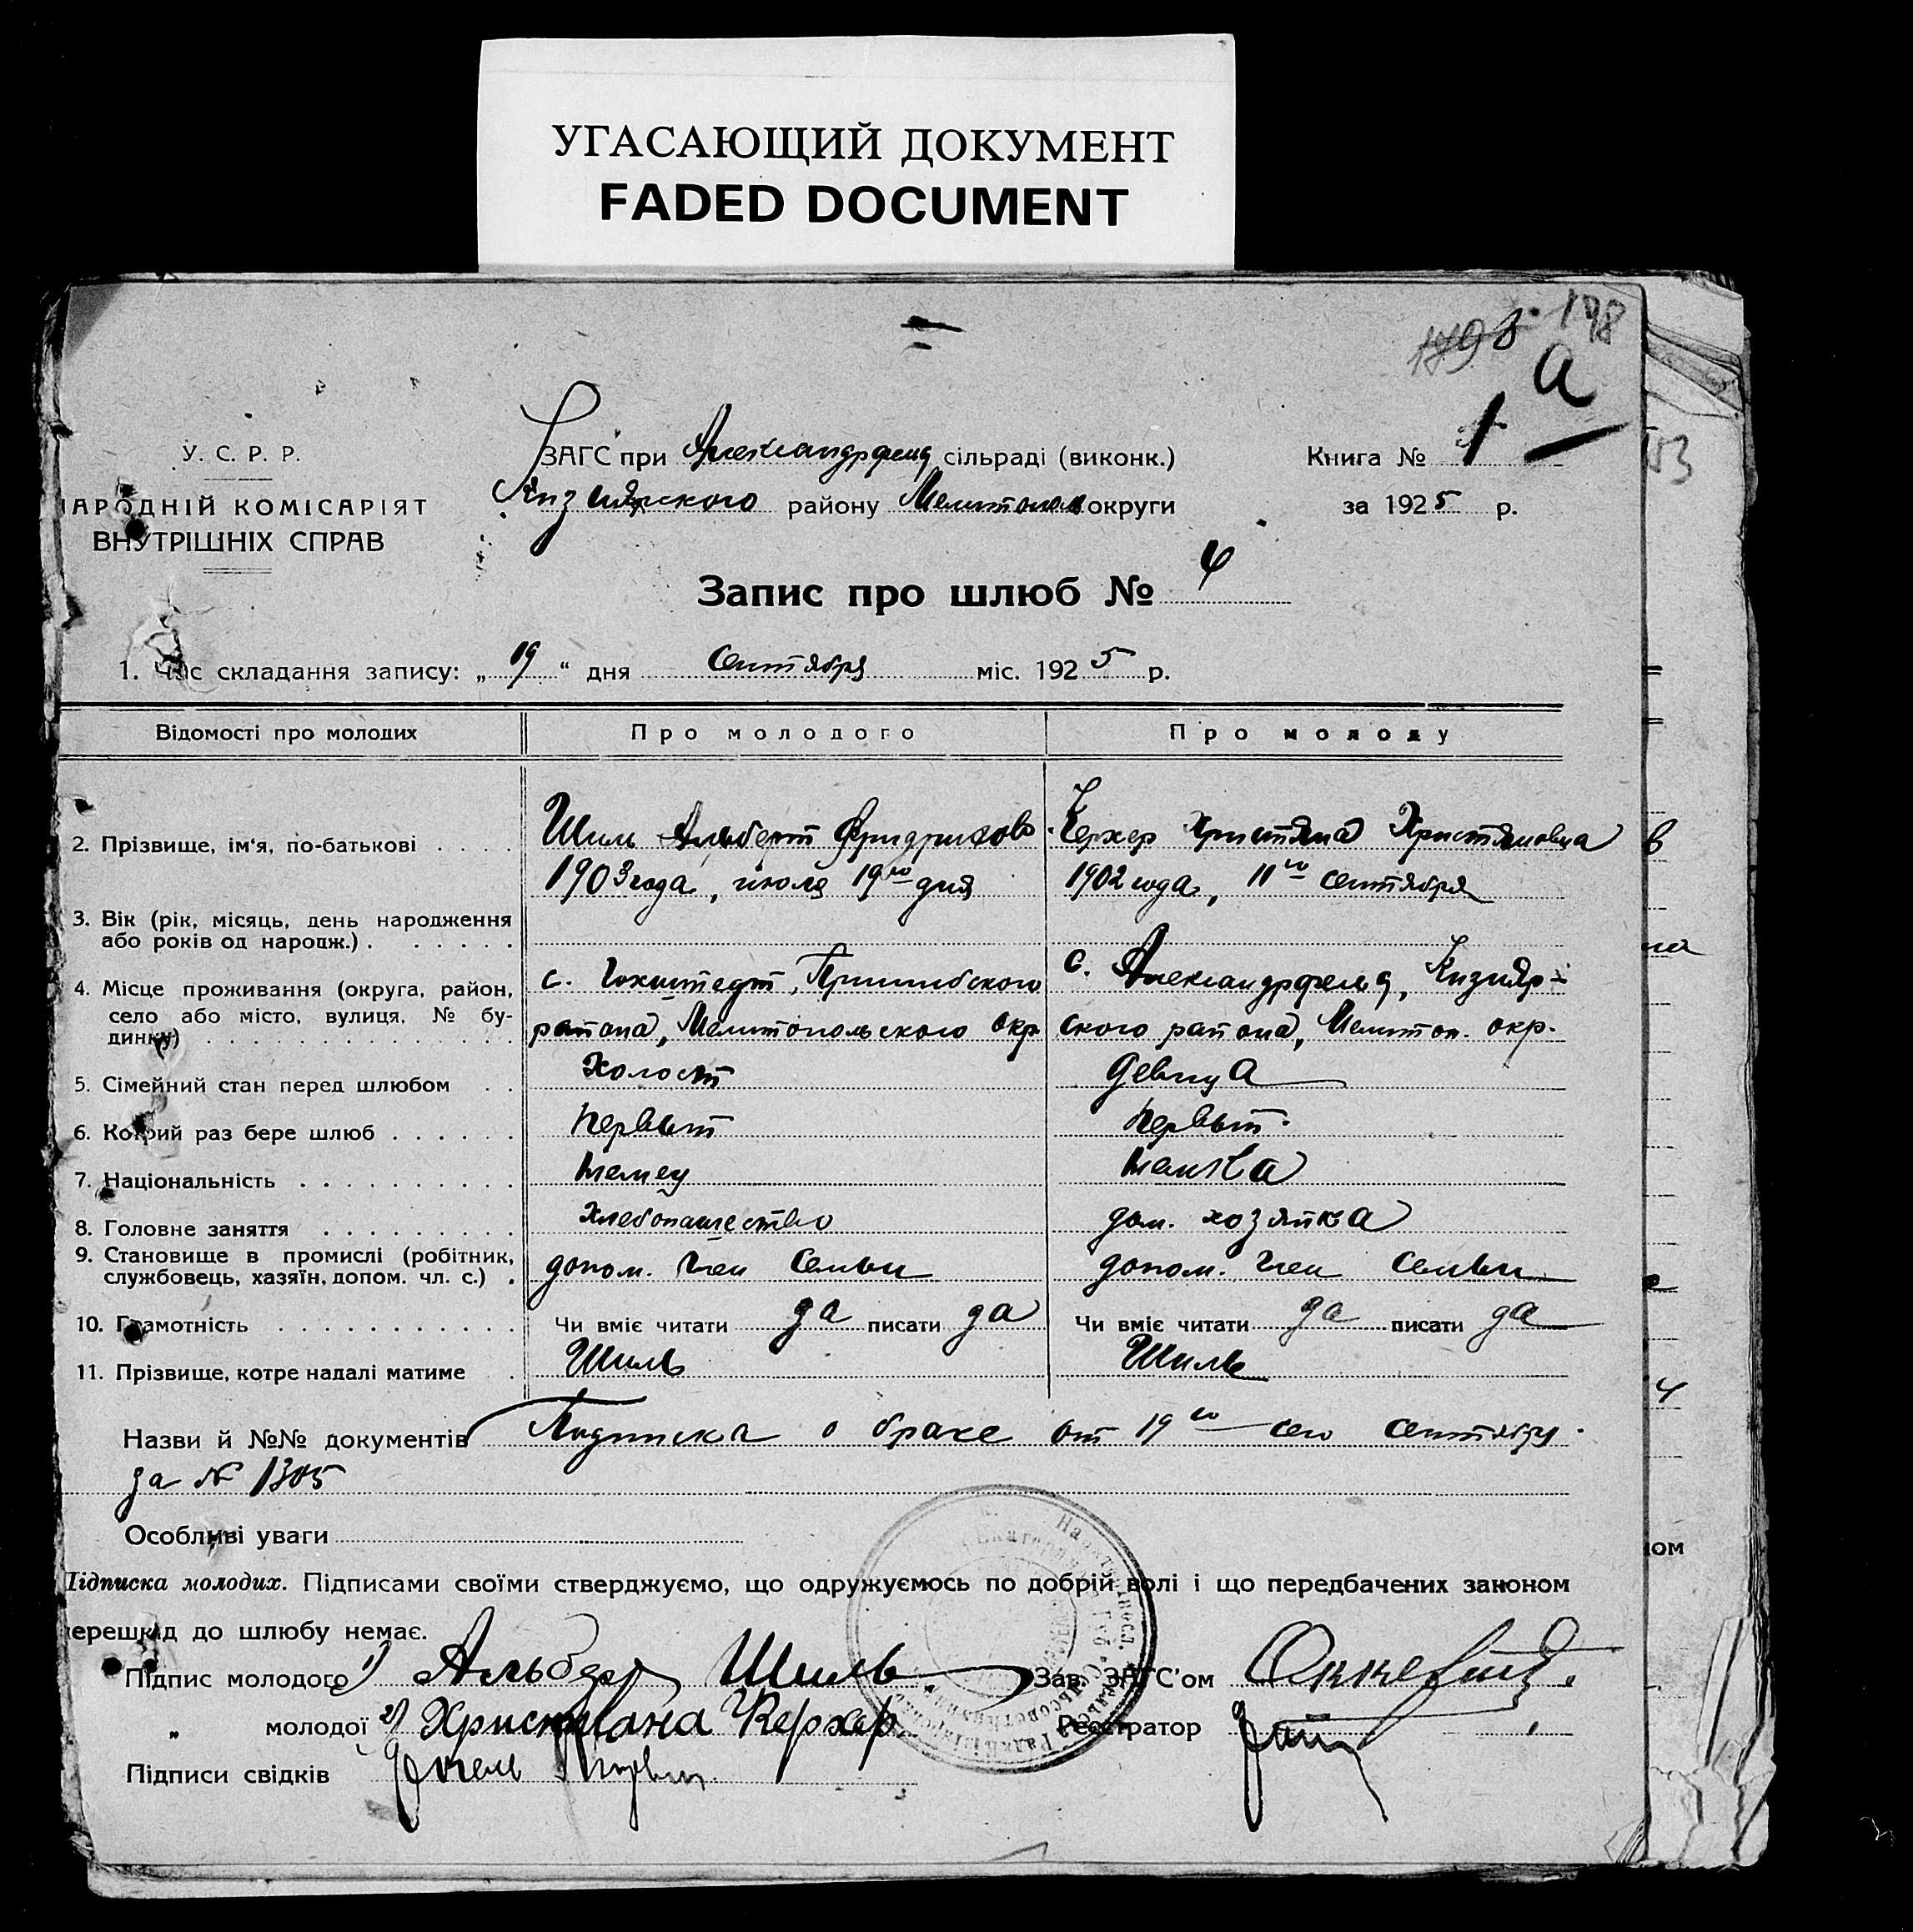 УГАСАЮЩИЙ ДОКУМЕНТ
FADED DOCUMENT
178
а
У. С. Р. Р.
НАРОДНІЙ КОМІСАРІЯТ
ВНУТРІШНІХ СПРАВ
ЗАГС при Александрфельд сільраді (виконк.)
Кизиярского району Мелитопол округи
Книга № 1
за 1925 р.
Запис про шлюб № 4
1. Час складання запису: „19“ дня Сентября міс. 1925 р.
Відомості про молодих Про молодого Про молоду
2. Прізвище, ім'я, по-батькові . . . . Шиль Альберт Фридрихов. Керхер Христяна Христяновна
1903 года, июля 19го дня 1902 года, 11го сентября
3. Вік (рік, місяць, день народження
або років од народж.) . . . . . .
4. Місце проживання (округа, район,
село або місто, вулиця, № бу-
динку) . . . . . . . . . . . . . . .
с. Гохштедт, Пришибского
района, Мелитопольского окр.
с. Александрфельд, Кизияр-
ского района, Мелитоп. окр.
5. Сімейний стан перед шлюбом . . Холост девица
6. Котрий раз бере шлюб . . . . . . Первый Первый.
7. Національність . . . . . . . . . . немец немка
8. Головне заняття . . . . . . . . . Хлебопашество дом. хозяйка
9. Становище в промислі (робітник,
службовець, хазяїн, допом. чл. с.) . допом. член семьи допом. член семьи
10. Грамотність . . . . . . . . . . . Чи вміє читати да писати да Чи вміє читати да писати да
11. Прізвище, котре надалі матиме . Шиль Шиль
Назви й №№ документів Подписка о браке от 19го сего сентября.
за № 1305
Особливі уваги
Підписка молодих. Підписами своїми стверджуємо, що одружуємось по добрій волі і що передбачених законом
перешкід до шлюбу немає.
Підпис молодого 1) Альберт Шиль Зав. ЗАГС'ом
„ молодої 2) Християна Керхер Реєстратор
Підписи свідків